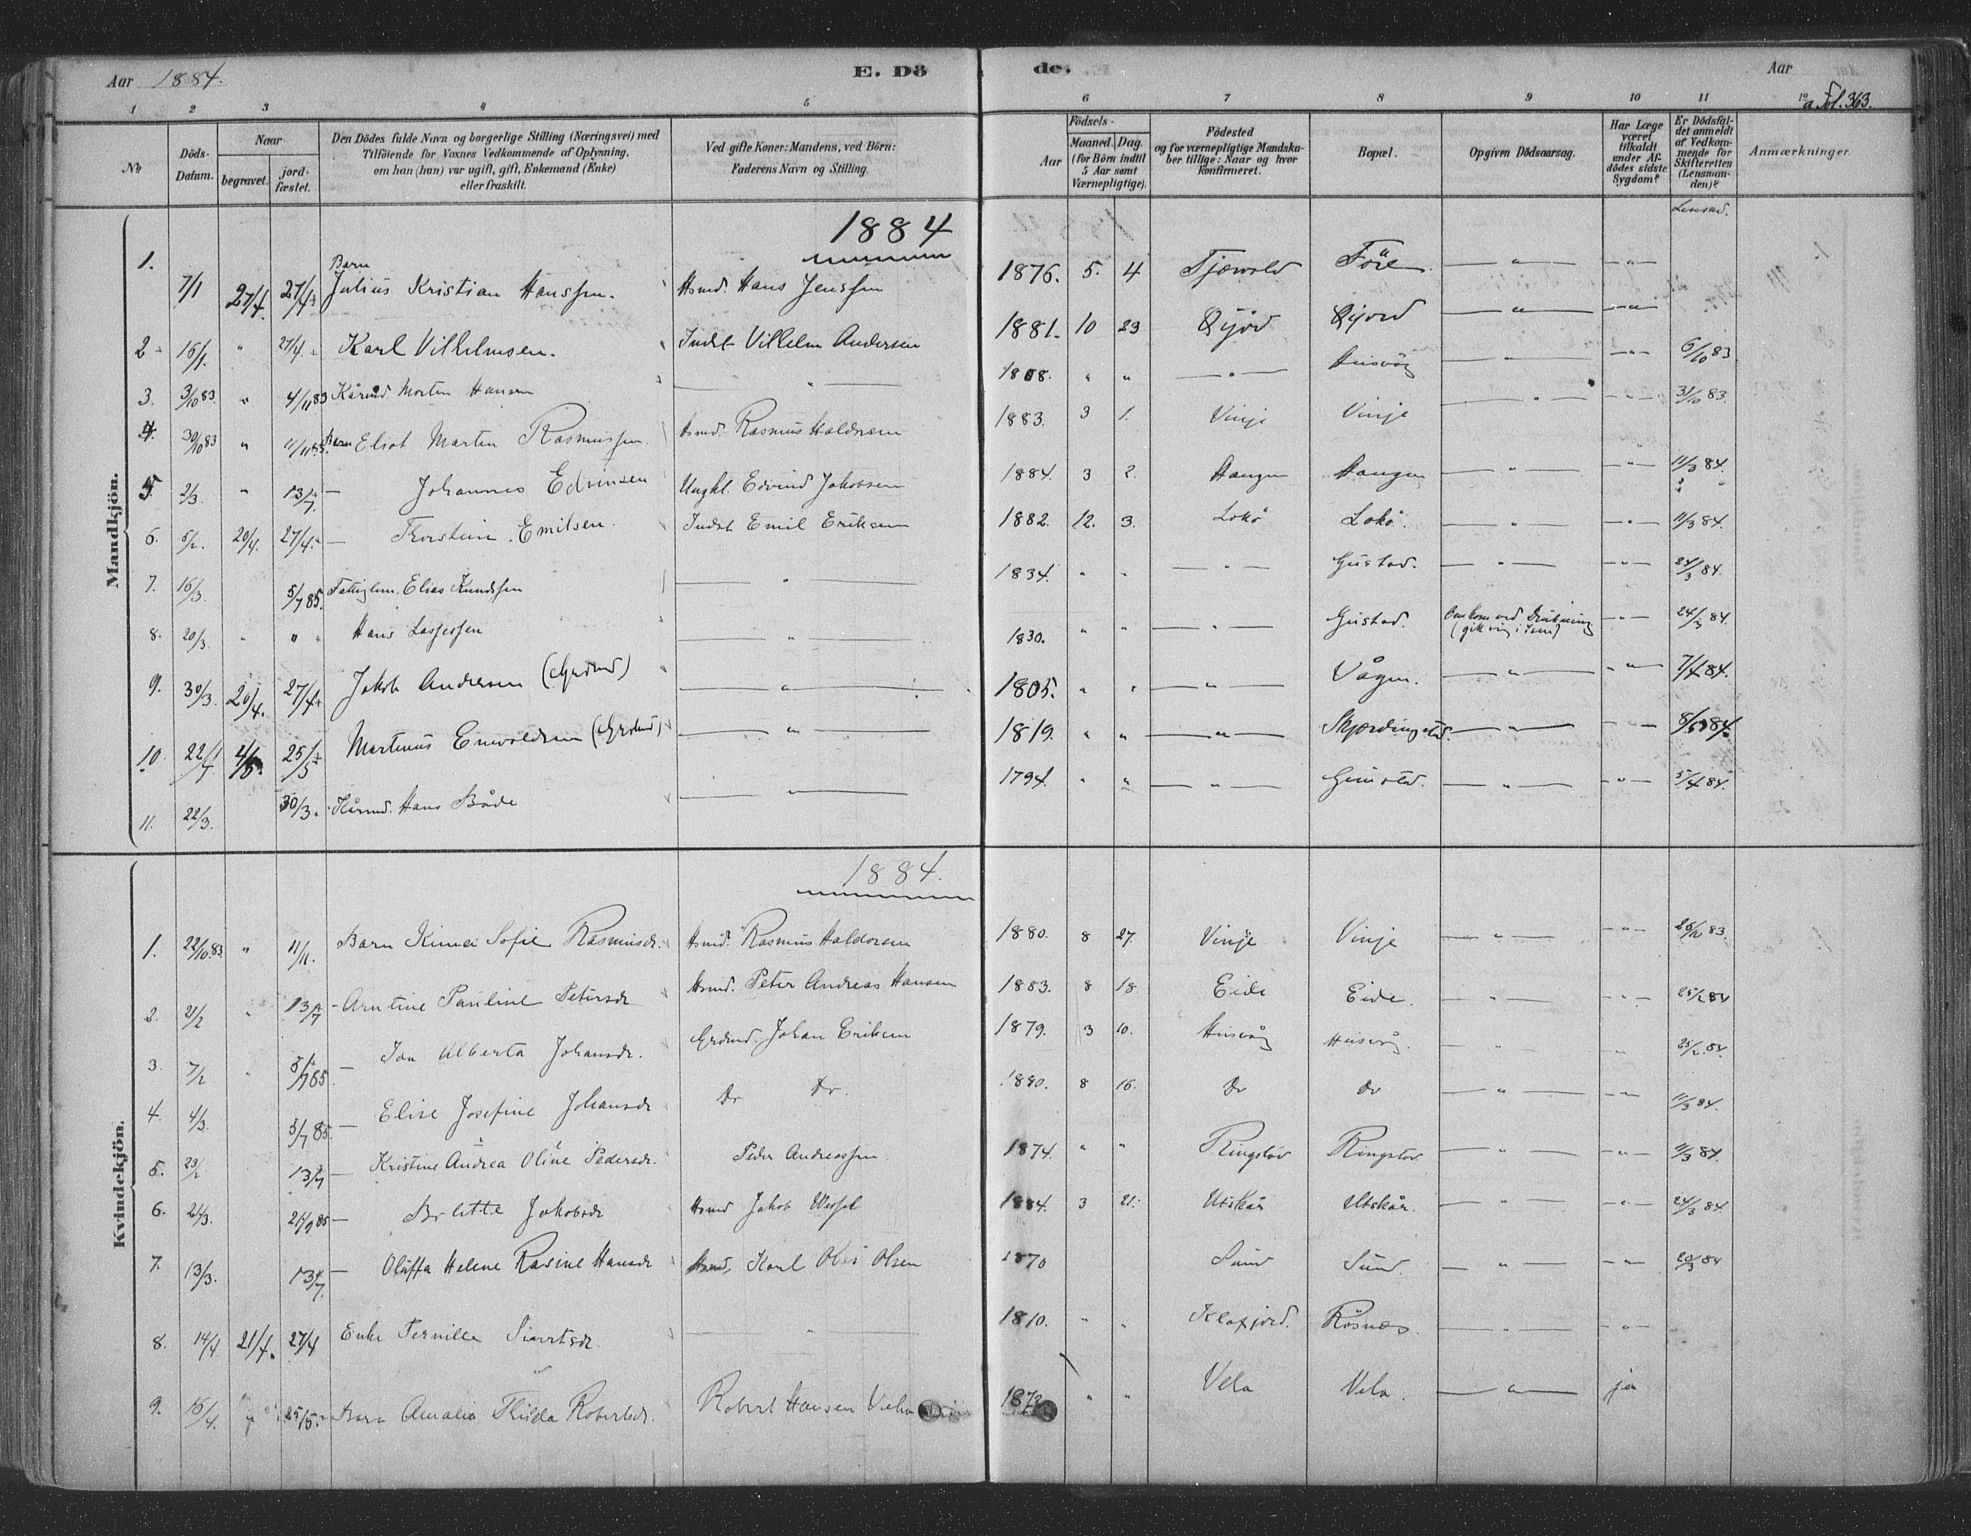 Aar 1884. E. Dö
de. Aar
a Fol. 363.
1 2 3 4 5 6 7 8 9 10 11 12
No
Döds-Datum.
Naar
begravet.
jord-fæstet.
Den Dödes fulde Navn og borgerlige Stilling (Næringsvei) med
Tilföiende for Voxnes Vedkommende af Oplysning,
om han (hun) var ugift, gift, Enkemand (Enke)
eller fraskilt.
Ved gifte Koner: Mandens, ved Börn:
Faderens Navn og Stilling.
Födsels-
Aar
Maaned. Dag.
(for Börn indtil
5 Aar samt
Værnepligtige).
Födested
og for værnepligtige Mandska-
ber tillige: Naar og hvor
konfirmeret.
Bopæl.
Opgiven Dödsaarsag.
Har Læge
været
tilkaldt
under Af-
dödes sidste
Sygdom?
Er Dödsfal-
det anmeldt
af Vedkom-
mende for
Skifteretten
(Lensman-
den)?
Anmærkninger.
Mandkjön.
1884
1. 7/1 27/4. 27/4 Barn Julius Kristian Hanssen. Hsmd. Hans Jenssen 1876. 5. 4 Före — " — — " —
2 16/1. " 27/4. Karl Vilhelmsen. Indst Vilhelm Andersen 1881. 10 23 — " — — " —
3. 3/10 83. " 4/11 83 Kårmd. Morten Hansen — " — 1808. " " — " — Husvåg — " — — " — 6/10 83.
4. 30/10 83 " 11/11 83. Barn Eliot Martin Rasmussen. Hsmd. Rasmus Haldorsen 1883. 3 1. Vinje Vinje — " — — " — 31/10 83.
5. 2/3. " 13/7. — Johannes Edvinsen Ungkl. Edvind Jakobsen 1884. 3 2. Haugen Haugen — " — — " — 11/3 84.
6. 5/2. 20/4. 27/4. — Thorstein Emilsen. Indst Emil Eriksen 1882. 12. 3. Lokö Lokö. — " — — " — 11/3 84.
7. 16/3. 5/7 85. Fattiglem. Elias Knudssen — " — 1834. " " — " — Gustad. — " — — " — 24/3 84.
8. 20/3. " " Hans Lassessen — " — 1830. " " — " — Gustad. Omkom ved Drukning (gik i Isen) — " — 24/3 84.
9. 30/3. 20/4. 27/4 Jakob Andersen (Grdmd) — " — 1805. " " — " — Vågen. — " — — " — 7/4 84.
10. 22/4 4/5. 25/5 Martinus Enwoldsen (Grdmd) — " — 1819. " " — " — Skjærdingstad. — " — — " — 8/5 84.
11. 22/3. 30/3. Kårmd. Hans Både — " — 1794. " " — " — Gimstad. — " — — " — 5/4 84.
Kvindekjön.
1884.
1. 22/10.83 " 11/11. Barn Sofie Rasmusdr. Hsmd. Rasmus Haldorsen 1880. 8 27. Vinje Vinje — " — — " — 26/10 83.
2. 21/2 " 13/7 — Arntine Pauline Petersdr Hsmd. Peter Andreas Hansen 1883. 8 18 Eide Eide. — " — — " — 25/2 84
3. 7/2 " 5/7 85. — Ida Alberta Johansdr. Grdmd. Johan Eriksen 1879. 3 10. Husvåg Husvåg. — " — " 25/2.84.
4. 4/3. 5/7 85. — Elise Josefine Johansdr Do Do. 1880. 8 16. Do Do — " — — " — 11/3 84.
5. 29/2 13/7 — Kristine Andrea Oline Pedersdr. Peder Andreassen 1874. " " Ringstav Ringstav — " — — " — 11/3 84.
6. 21/3. 21/9 85 — Berlette Jakobsdr Hsmd Jakob Wessel 1884. 3 21. Utskår Utskår. — " — — " — 24/3 84.
7. 13/3. 13/7. — Oluffa Helene Rasine Hansdr Hsmd. Karl Olsen 1870 Sund Sund. — " — — " — 20/3 84
8. 14/4 21/4. 27/4 Enke Pernille Sivertsdr. — " — 1810. " " Klaxjord. Rösnes. — " — — " —
9. 16/4. " 25/5. Barn Amalia Thilda Robertsdr. Robert Hansen 187 " " Vela Vela. — " — ja